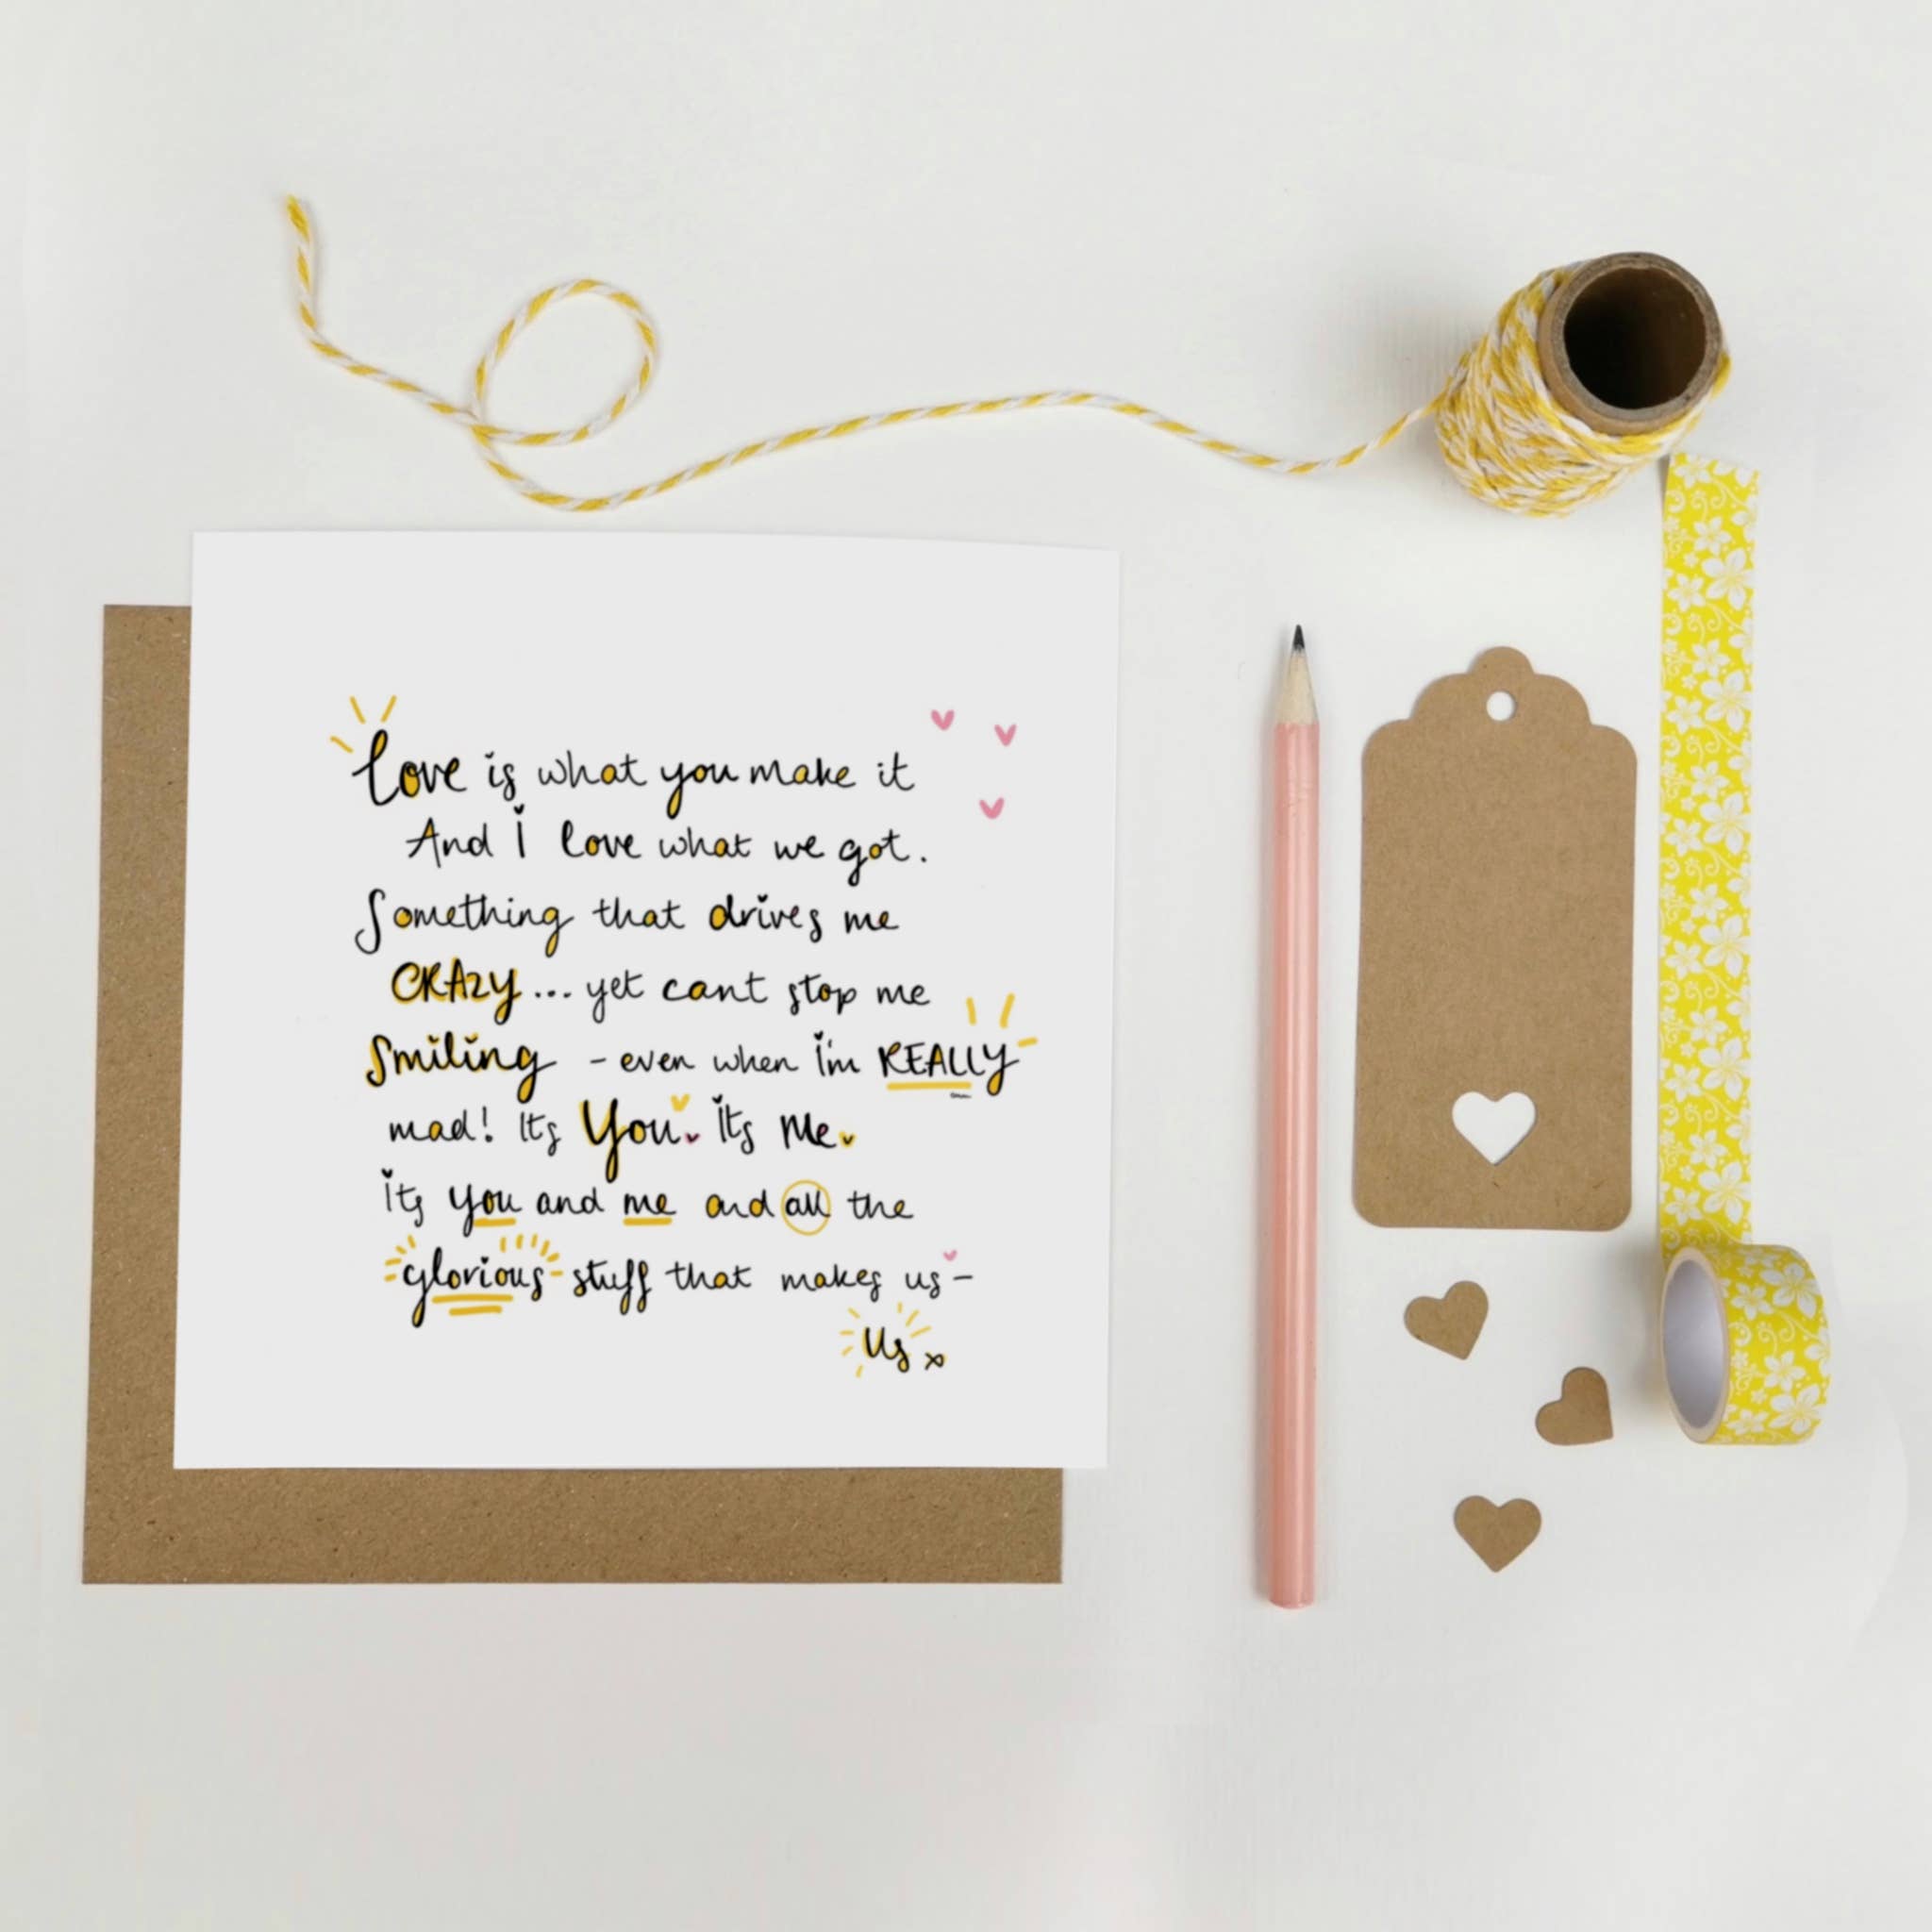 Love is what you make it
And I love what we got.
Something that drives me
CRAZY... yet cant stop me
Smiling - even when i'm REALLY
mad! Its You. Its Me.
its you and me and all the
glorious stuff that makes us -
Us x